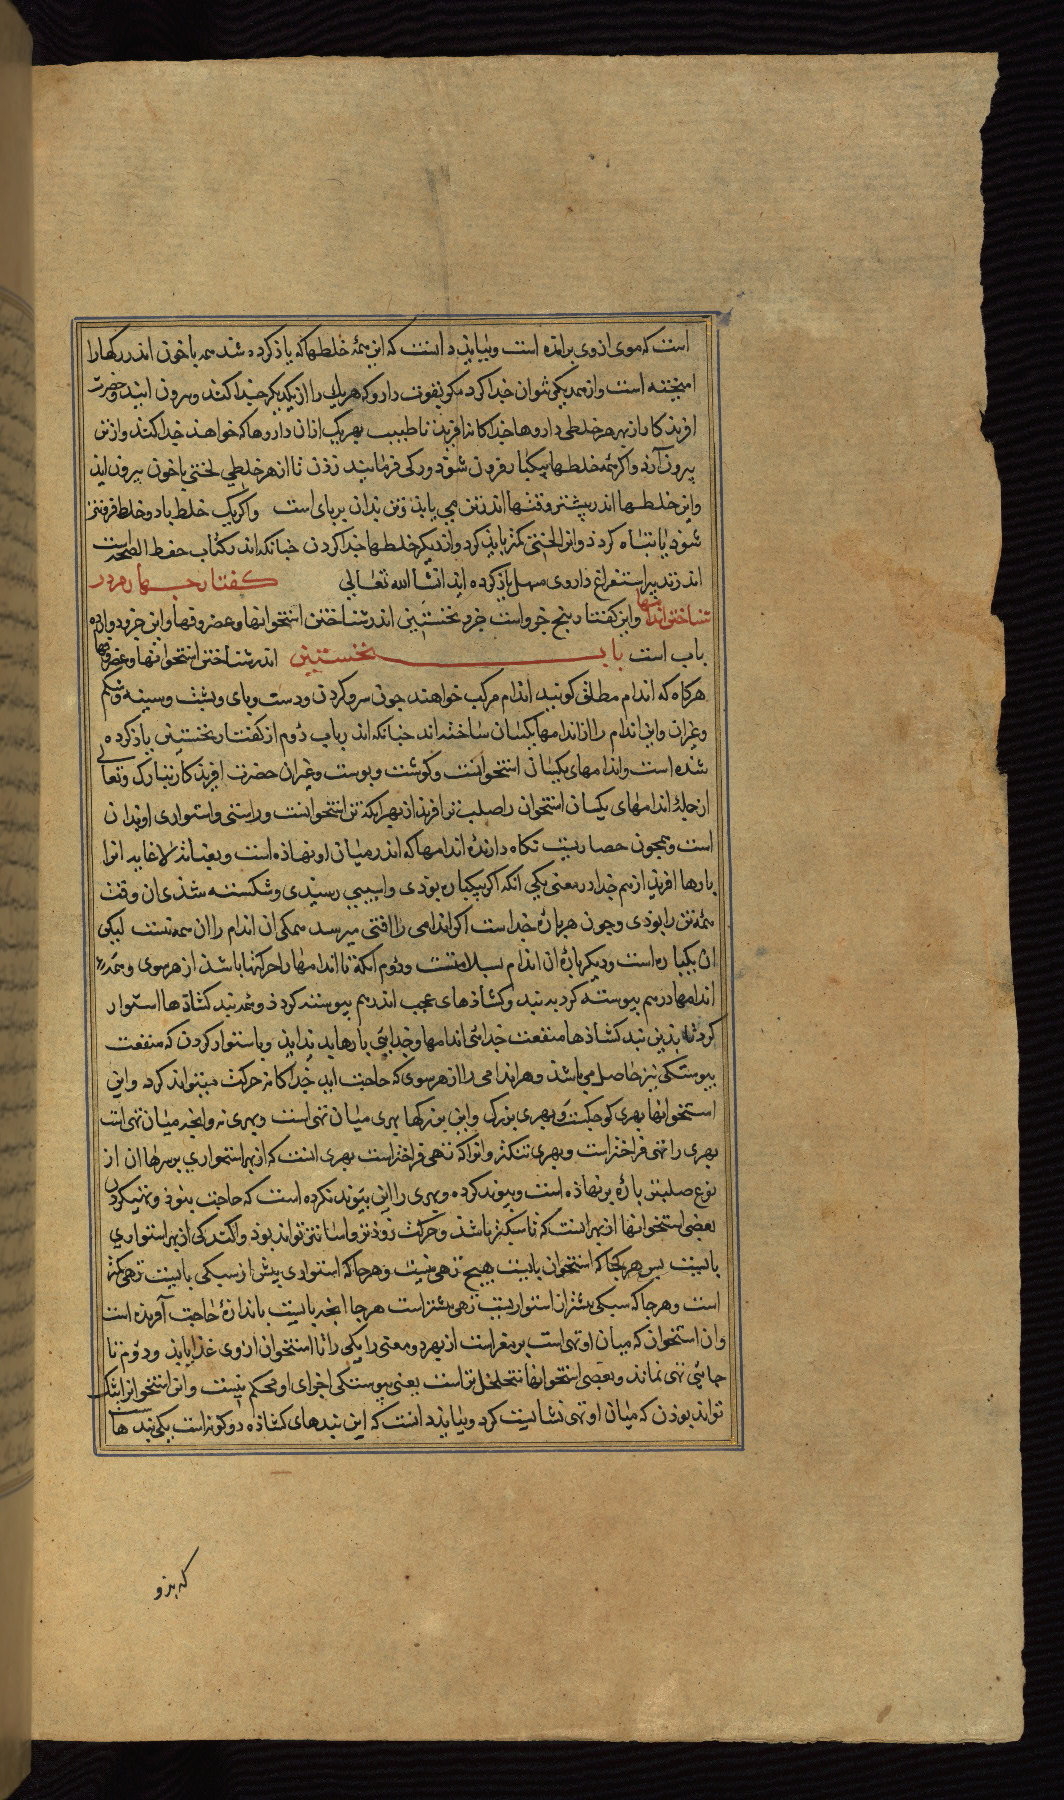 است که موی از وی برامده است و بباید دانست که این همهٔ خلطها که یاذ کرده شد همه با خون اندر رکها را
امیخته است و از همدیکر نتوان جدا کرد مکر بقوت دارو که هر یک را از یکدیکر جدا کند و برون ارد و حضرت
افریذکار از بهر هر خلطی داروها جداکانه افریذ تا طبیب بهر یک ازان داروها که خواهد جدا کند و از تن
بیرون آرد و اکر همه خلطها بیکبار فزون شوذ رک فرمایند زذن تا از هر خلطی لختی با خون بیرون ایذ
و این خلطها اندر بیشتر وقتها اندر تن می بایذ و تن بذان بر پای است و اکر یک خلط یا دو خلط فزونتر
شوذ یا تباه کردذ انرا لختی کمتر بایذ کرد و از دیکر خلطها جدا کردن چنانکه اندر کتاب حفظ الصحه است
اندر تدبیر استفراغ داروی مسهل یاذ کرده اید انشا الله تعالی کفتار چهارم در
شناختن اندامها و این کفتار پنج جزو است جزو نخستین اندر شناختن استخوانها و غضروفها و این جزو دوازده
باب است باب نخستین اندر شناختن استخوانها و غضروفها
هرکاه که اندام مطلق کویند اندام مرکب خواهند چون سر و کردن و دست و پای و پشت و سینه و شکم
و غیران و این اندام را از اندامهای یکسان ساخته اند چنانکه اندر باب دوم از کفتار نخستین یاذ کرده
شده است و اندامهای یکسان استخوانست و کوشت و پوست و غیران حضرت افریذکار تبارک و تعالی
از جملهٔ اندامهای یکسان استخوان را صلب تر افریذ از بهر انکه تن استخوانست و راستی و استواری او بذان
است و همچون حصاریست نکاه دارندهٔ اندامها که اندر میان او نهاذه است و بعنایت لا غایه انرا
پارها افریذ از هم جدا دو معنی یکی انکه اکر بیکباره بوذی و اسیبی رسیذی و شکسته شذی ان وقت
همهٔ تن را بوذی و چون هر پارهٔ جداست اکر اندامی را افتی میرسد همکی ان اندام را ان همه نیست لیکن
ان یکباره است و دیکر پارهٔ ان اندام بسلامتست و دوم انکه تا اندامها را حرکتها باشذ از هر سوی و همهٔ
اندامها در هم پیوسته کرد به بند و کشاذهای عجب اندر هم پیوسته کرد و همه بند کشاذها استوار
کرد تا بذین بند کشاذها منفعت جدائی اندامها و جدایی پارها پدید ایذ و باستوار کردن که منفعت
پیوستکی نیز حاصل می باشذ و هر اندامی را از هر سوی که حاجت اید جداکانه حرکت میتواند کرد و این
استخوانها بهری کوچکست و بهری بزرک و این بزرکها بهری میان تهی است و بهری نه و انچه میان تهی است
بهری را تهی فراختر است و بهری تنکتر و انرا که تهی فراختر است بهری انست که از بهر استواری بر سرها ان از
نوع صلبتر پارهٔ بر نهاذه است و پیوند کرده و بهری را این پیوند نکرده است که حاجت نبوذ و تهی کردن
بعضی استخوانها از بهر انست که تا سبکتر باشذ و حرکت زوذتر و اسانتر تواند بوذ و اکندکی از بهر استواری
بایست پس هر کجا که استخوان بایست هیچ تهی نیست و هر جا که استواری بیش از سبکی بایست تهی کمتر
است و هر جا که سبکی بیشتر از استواریست تهی بیشتر است هر جا انچه بایست باندازهٔ حاجت آفریده است
و ان استخوان که میان او تهی است پر مغز است از بهر دو معنی را یکی را تا استخوان از وی غذا یابذ و دوم تا
جائی تهی نماند و بعضی استخوانها متخلخل تر است یعنی پیوستکی اجزای او محکم نیست و این استخوانرا تنک
تواند بوذن که میان او تهی نشایست کرد و بباید دانست که این بندهای کشاذه دو کونه است یکی بندهاست
که بزو